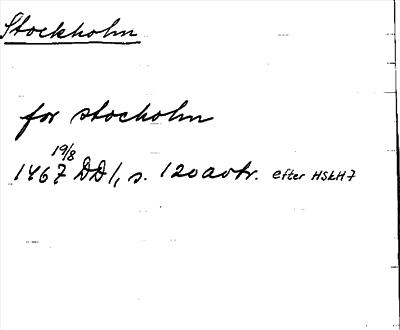 Stockholm
for stocholm
19/8
1467 DD1, s. 120 avtr. efter HSkH 7